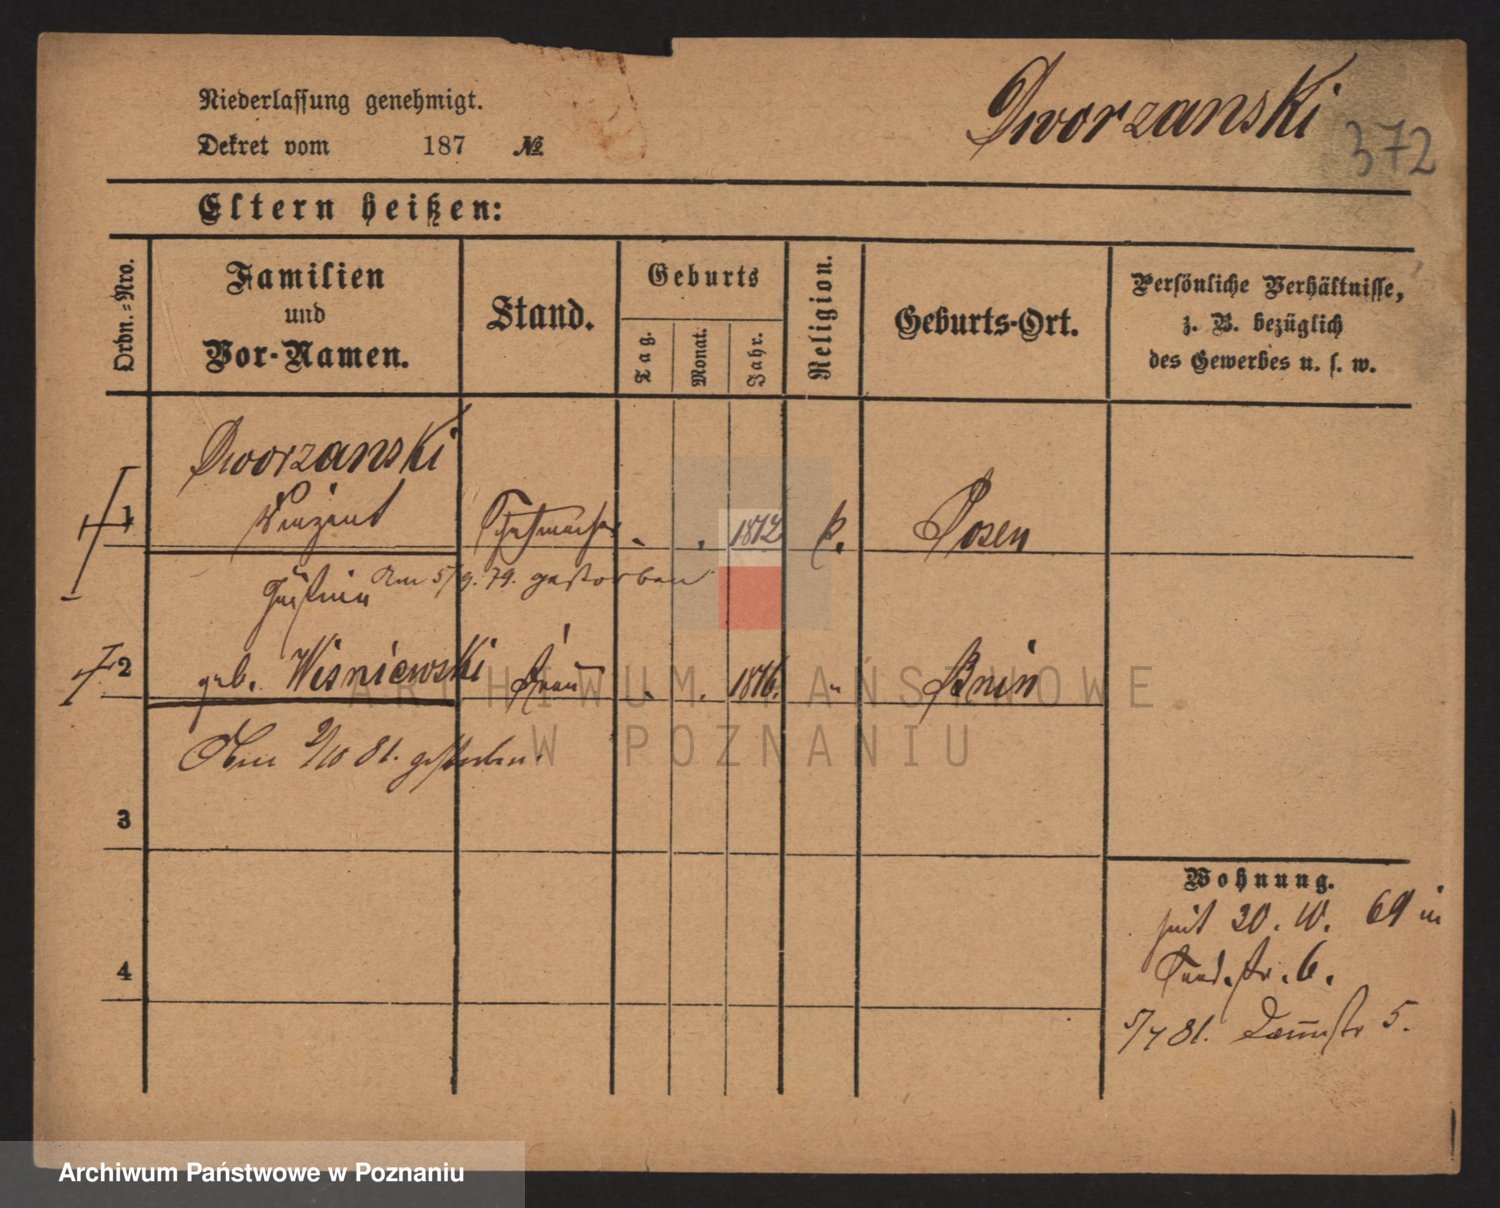 Niederlassung genehmigt.
Dekret vom 187 №
Dworzanski
372
Eltern heißen:
Ordn.=Nro.
Familien
und
Vor-Namen.
Stand.
Geburts
Tag.
Monat.
Jahr.
Religion.
Geburts-Ort.
Persönliche Verhältnisse,
z. B. bezüglich
des Gewerbes u. s. w.
Dworzanski
1 Vinzent . . 1812 k. Posen
Am 5/9. 79. gestorben
Justina
2 geb. Wisniewski Frau . . 1816. " Bnin
Am 2/10 81. gestorben.
3
4
Wohnung.
seit 20. 10. 69 in
str. 6.
5/4 81. Dammstr 5.
ARCHIWUM PAŃSTWOWE
W POZNANIU
Archiwum Państwowe w Poznaniu